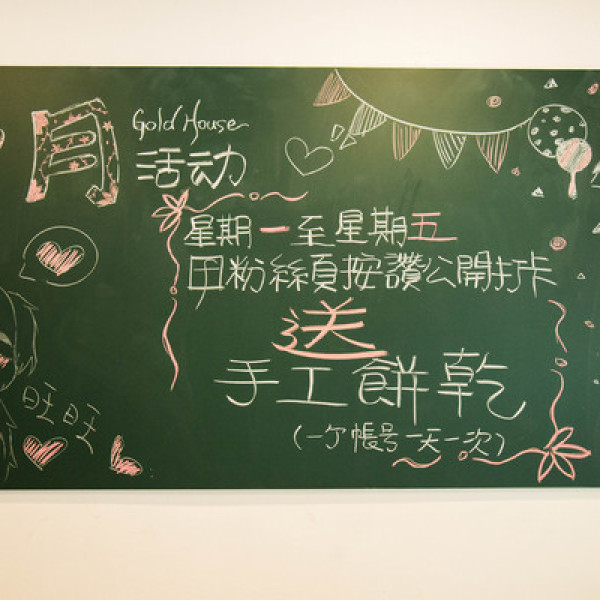 月
Gold House
活动
星期一至星期五
用粉絲頁按讚公開打卡
送
手工餅乾
(一个帳号一天一次)
旺旺